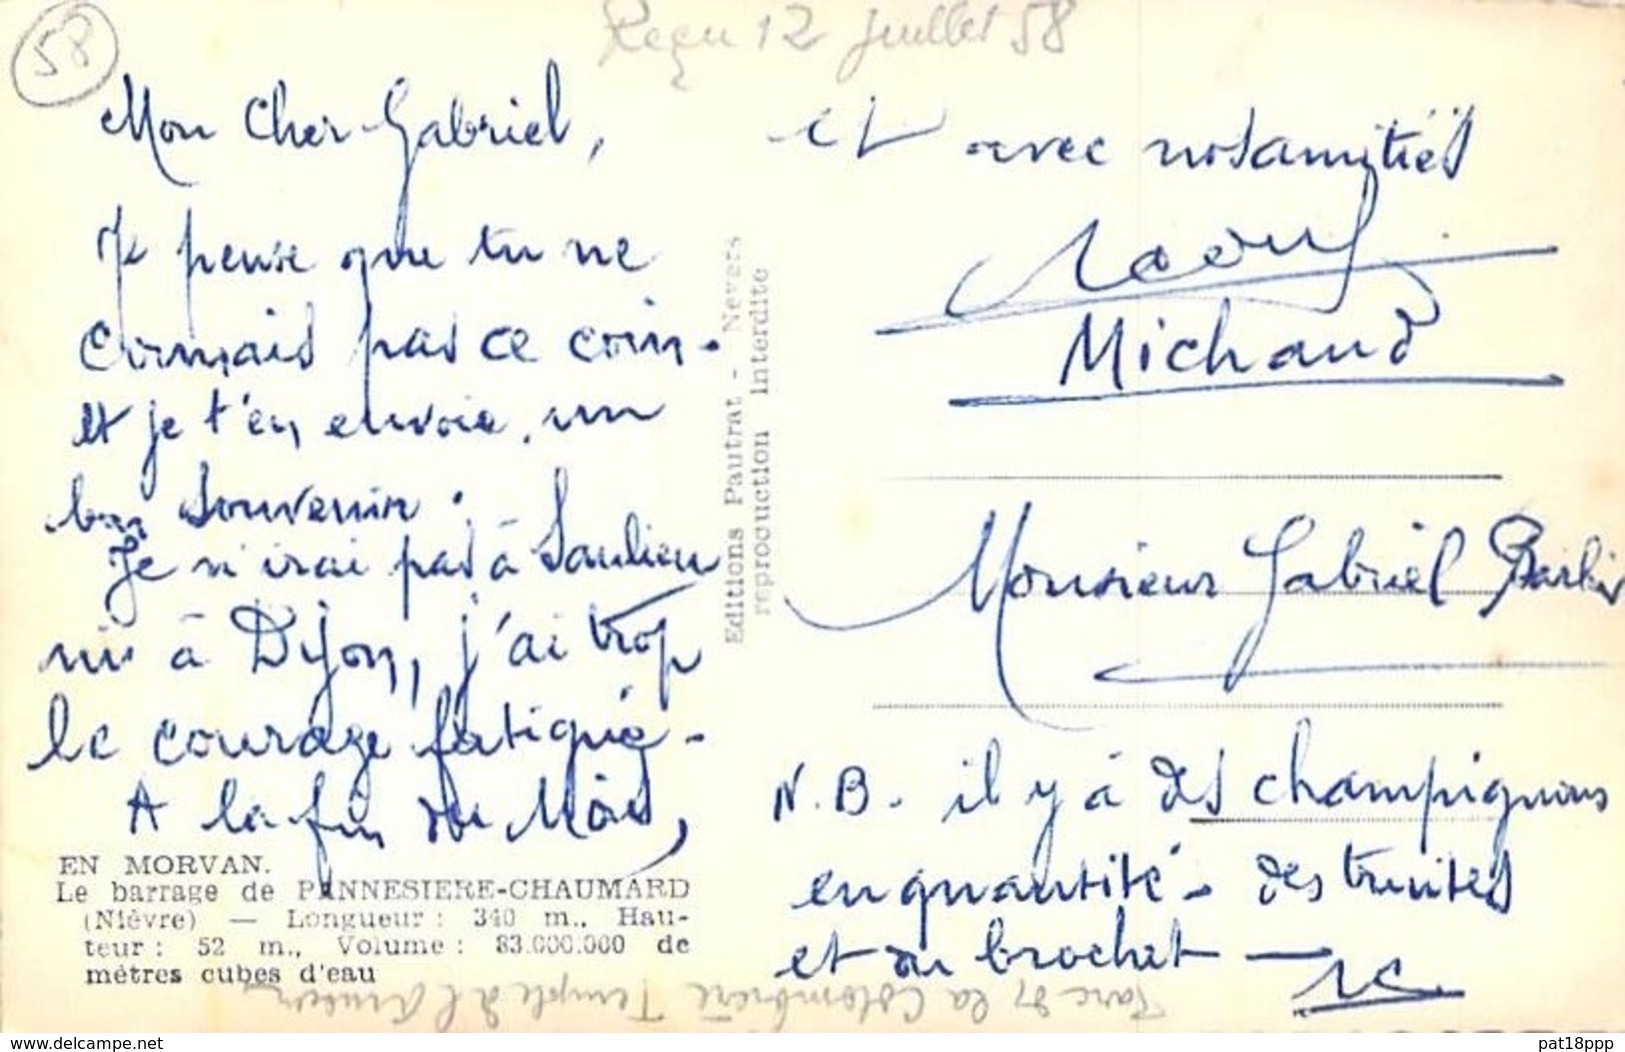 58
Reçu 12 Juillet 58
Mon Cher Gabriel,
Je pense que tu ne
connais pas ce coin.
et je t'en envoie, un
bon souvenir.
Je n'irai pas à Saulieu
ni à Dijon, j'ai trop
le courage fatigué -
A la fin du Mois,
EN MORVAN.
Le barrage de PANNESIERE-CHAUMARD
(Nièvre) — Longueur : 340 m., Hau-
teur : 52 m., Volume : 83.000.000 de
mètres cubes d'eau
Editions Pautrat - Nevers
reproduction interdite
et avec nos amitiés
Raoul
Michaud
Monsieur Gabriel Barbier
N.B. il y à des champignons
en quantité - des truites
et du brochet —
Parc de la Colombière Temple de l'Amour
www.delcampe.net
pat18ppp